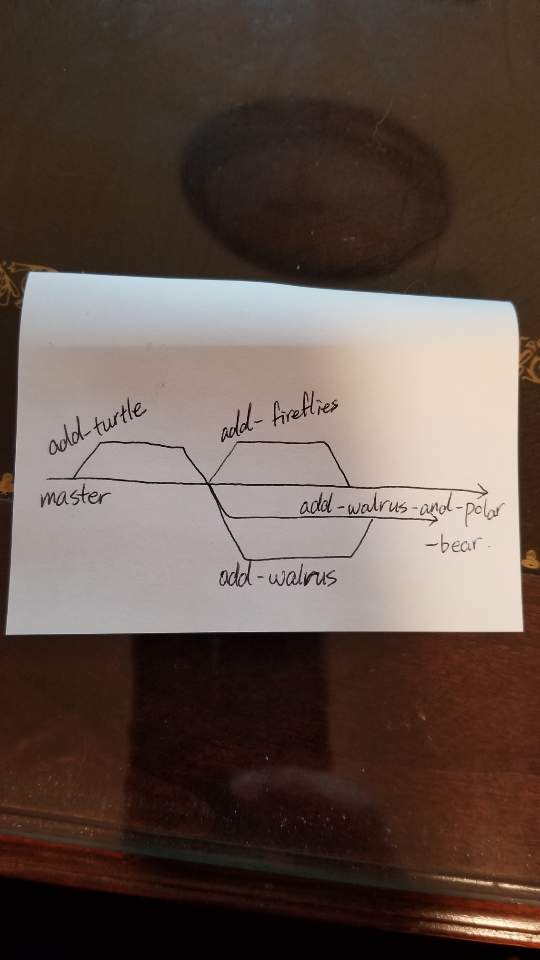 add-turtle
add-fireflies
master
add-walrus-and-polar
-bear.
add-walrus